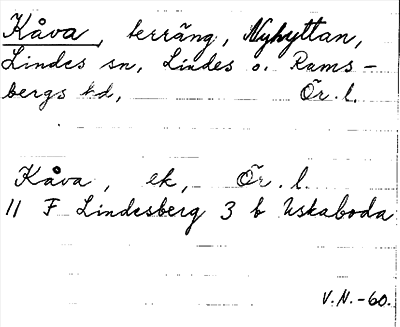 Kåva, terräng, Nyhyttan,
Lindes sn, Lindes o. Rams-
bergs hd, Ör. l.
Kåva, ek, Ör. l.
11 F Lindesberg 3 b Uskaboda
V.N.-60.